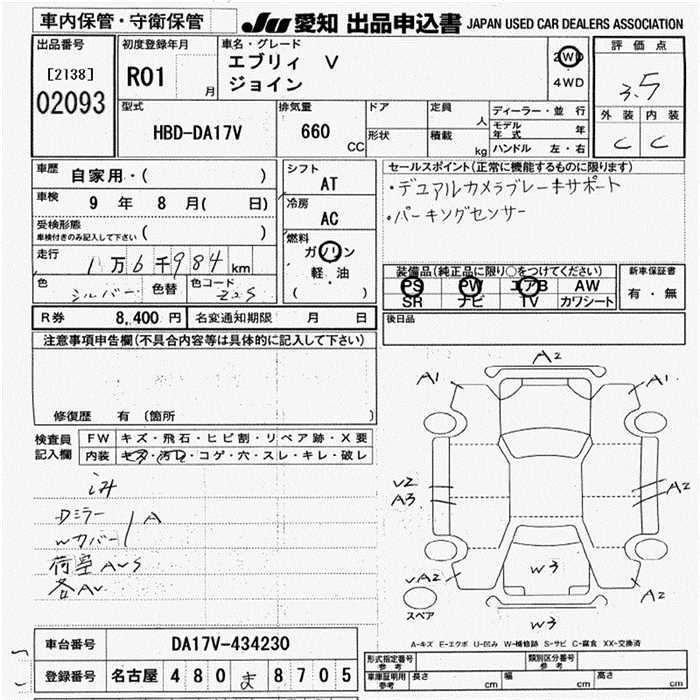 車内保管・守衛保管
JU 愛知 出品申込書 JAPAN USED CAR DEALERS ASSOCIATION
出品番号
[2138]
02093
初度登録年月
R01 月
車名・グレード
エブリィ V
ジョイン
2WD
4WD
評価点
3.5
外装 内装
C C
型式
HBD-DA17V
排気量
660 CC
ドア
形状
定員 人
積載 kg
ディーラー・並行
モデル年式 年
ハンドル 左・右
車歴
自家用・( )
車検
9 年 8 月( 日)
受検形態
車検付きのみ記入して下さい ( )
走行
1万6千984 km
色 シルバー 色替
色コード Z2S
シフト
AT
冷房
AC
燃料
ガソリン
軽・油
( )
セールスポイント(正常に機能するものに限ります)
・デュアルカメラブレーキサポート
・パーキングセンサー
装備品(純正品に限り○をつけてください)
PS PW エアB AW
SR ナビ TV カワシート
新車保証書
有・無
後日品
R券 8,400 円 名変通知期限 月 日
注意事項申告欄(不具合内容等は具体的に記入して下さい)
修復歴 有 〔箇所 〕
検査員記入欄
FW キズ・飛石・ヒビ割・リペア跡・X要
内装 キズ・汚れ・コゲ・穴・スレ・キレ・破レ
Dミラー
Wカバー A
荷室AUS
各AU
A2
A1 A1
U2
A3
A2
W3
UA2
A2
スペア
W3
A-キズ E-エクボ U-凹み W-補修跡 S-サビ C-腐食 XX-交換済
車台番号 DA17V-434230
登録番号 名古屋 480 ま 8705
形式指定番号 参考
類別区分番号 参考
車庫証明用 参考
長さ cm 幅 cm 高さ cm